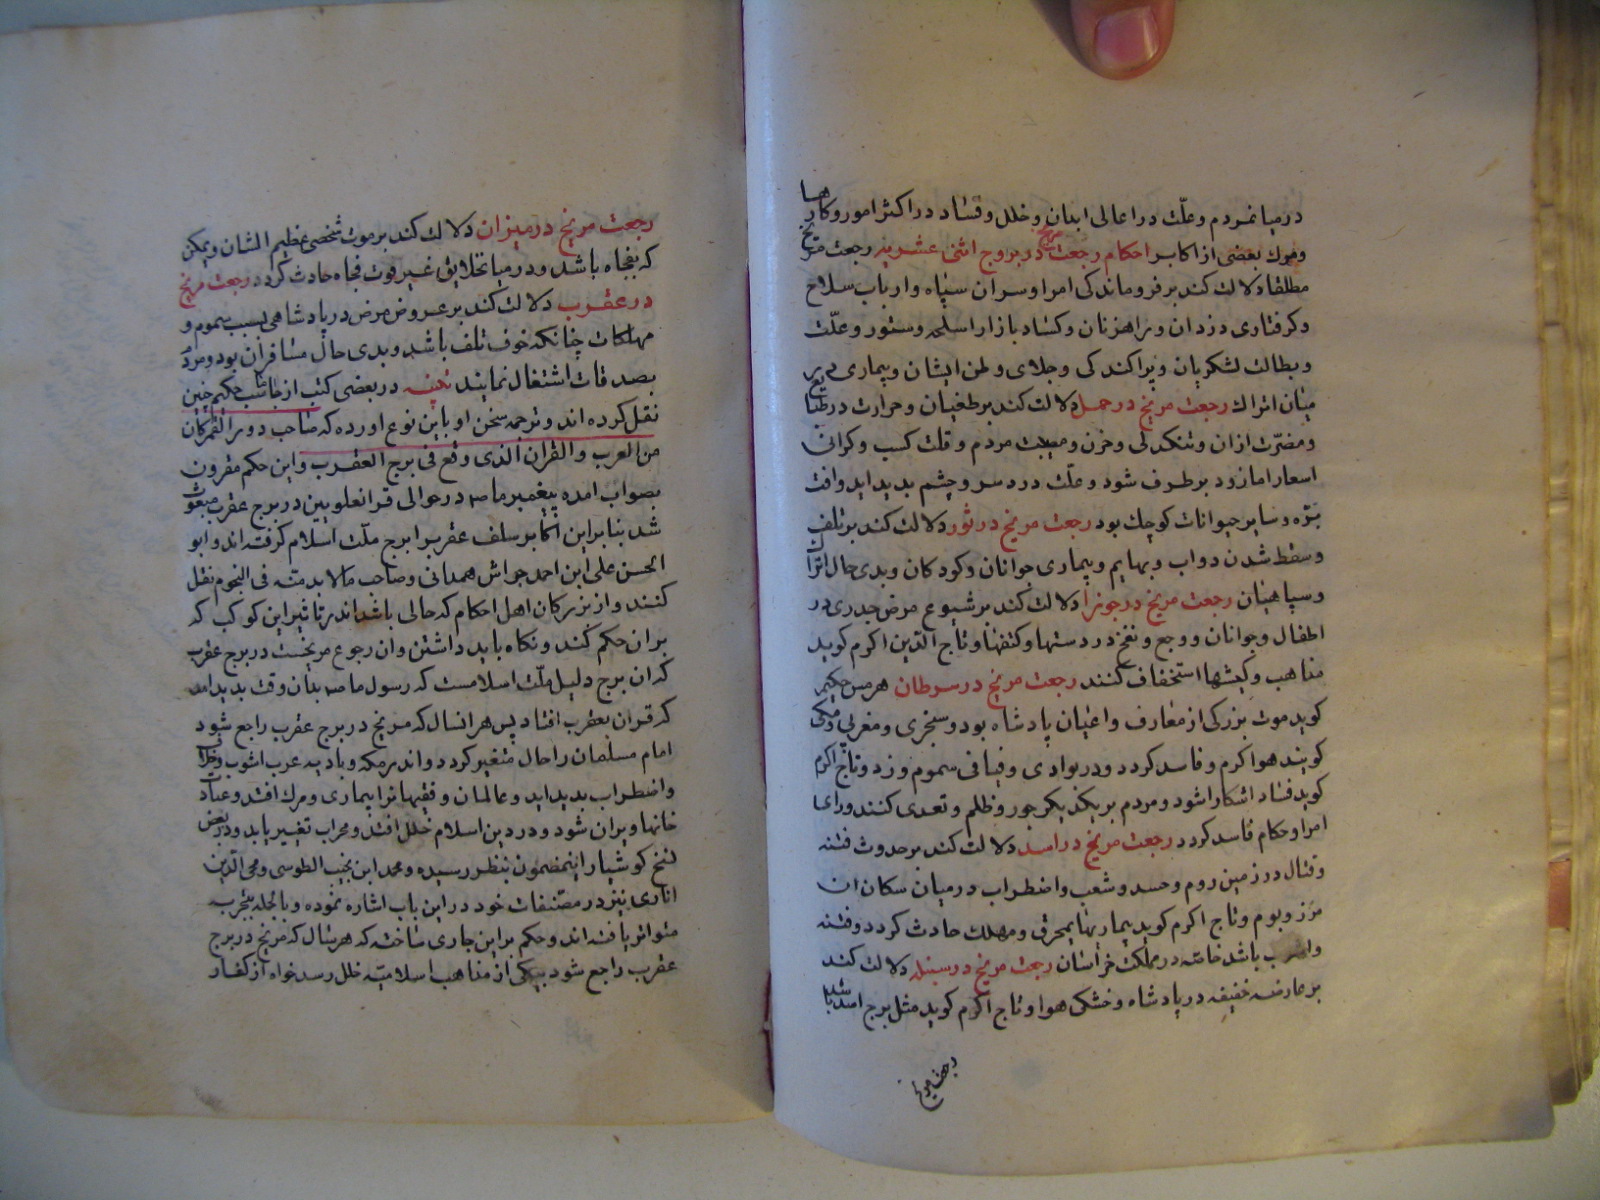 درمیا نمردم و علّت در اعالی ابدان و خلل و فساد در اکثر امور و کارها
و مرك بعضی از اکابر احکام رجعت مریخ در بروج اثنی عشریه رجعت مریخ
مطلقا دلالت کند بر فروماندکی امرا و سران سپاه و ارباب سلاح
و کرفتاری دزدان و راهزنان و کساد بازار اسلحه و ستور و علّت
و بطالت لشکریان و پراکندکی و جلای وطن ایشان و بیماری در
میان اتراك رجعت مریخ در حمل دلالت کند بر طغیان و حرارت در طبایع
و مضرّت ازان و تنکدلی و حزن و مصیبت مردم و قلت کسب و کرانی
اسعار اما زود بر طرف شود و علّت درد سر و چشم بدید اید و افت
بره و سایر حیوانات کوچك بود رجعت مریخ در ثور دلالت کند بر تلف
و سقط شدن دواب و بهایم و بیماری جوانان و کودکان و بدی حال اتراك
و سپاهیان رجعت مریخ در جوزا دلالت کند بر شیوع مرض جدری در
اطفال و جوانان و وجع و نفخ در دستها و کتفها و تاج الدین اکرم کوید
مذاهب و کیشها استخفاف کنند رجعت مریخ در سرطان هرمس حکیم
کوید موت بزرکی از معارف و اعیان پادشاه بود و سنجری و مغربی و مکی
کویند هوا کرم و فاسد کردد و در بوادی و فیافی سموم وزد و تاج اکرم
کوید فساد اشکارا شود و مردم بر یکدیکر جور و ظلم و تعدی کنند و رای
امرا و حکام فاسد کردد رجعت مریخ در اسد دلالت کند بر حدوث فتنه
و قتال در زمین روم و حسد و شغب و اضطراب در میان سکان ان
مرز و بوم و تاج اکرم کوید بیماریهای محرق و مهلك حادث کردد و فتنه
باشد خاصه در مملکت خراسان رجعت مریخ در سنبله دلالت کند
بر عارضه خفیفه در پادشاه و خشکی هوا و تاج اکرم کوید مثل برج اسد باشد
رجعت مریخ
رجعت مریخ در میزان دلالت کند بر موت شخصی عظیم الشان و یمکن
که بفجاه باشد و در میا نخلایق غیر فوت فجاه حادث کردد رجعت مریخ
در عقرب دلالت کند بر عروض مرض در پادشاهی بسبب سموم و
مهلکات چنانکه خوف تلف باشد و بدی حال مسافران بود و مردم
بصدقات اشتغال نمایند تنبیه در بعضی کتب از جاماسب حکیم چنین
نقل کرده اند و ترجمه سخن او باین نوع اورده که صاحب دور القمر کان
من العرب و القران الذی وقع فی برج العقرب و این حکم مقرون
بصواب امده پیغمبر ما صه در حوالی قرانعلویین در برج عقرب مبعوث
شد بنابراین اکابر سلف عقرب را برج ملّت اسلام کرفته اند و ابو
الحسن علی ابن احمد جواش همدانی و صاحب مالا بد منه فی النجوم نقل
کنند و از بزرکان اهل احکام که حالی باشد اندر تاثیر این کوکب که
بران حکم کنند و نکاه باید داشتن وان رجوع مریخست در برج عقرب
که ان برج دلیل ملّت اسلامست که رسول ما صه بدان وقت بدید امد
که قران بعقرب افتاد پس هر انسال که مریخ در برج عقرب راجع شود
امام مسلمان را حال متغیر کردد و اندر مکه و بادیه عرب اشوب و
و اضطراب بدید اید و عالمان و فقیهانرا بیماری و مرك افتد و عبادت
خانها ویران شود و در دین اسلام خلل افتد و محراب تغییر یابد و در بعض
نسخ کوشیار اینمضمون بنظر رسیده و محمد ابن نجیب الطوسی و محی الدین
اناری نیز در مصنفات خود در این باب اشاره نموده و بالجله بتجربه
متواتر یافته اند و حکم براین جاری ساخته که هر سال که مریخ در برج
عقرب راجع شود بیکی از مذاهب اسلامیّه خلل رسد خواه از کفار